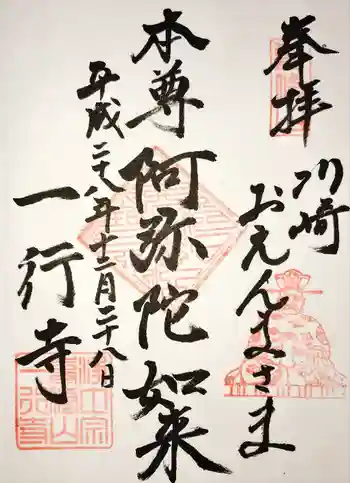 奉拝
川崎
おえんまさま
本尊阿弥陀如来
平成二十八年十二月二十八日
一行寺